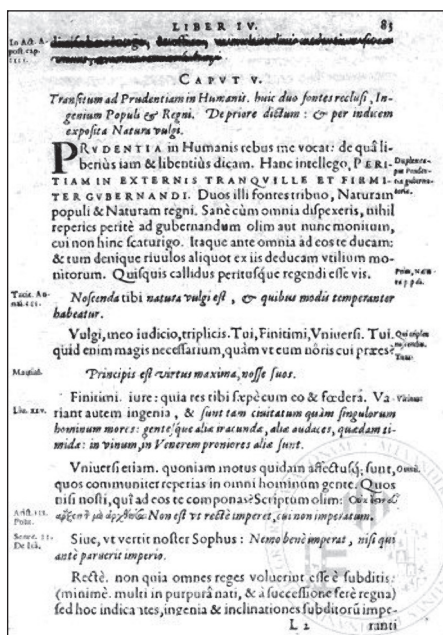 LIBER IV. 83
In Act. A-
post. cap.
CAPVT V.
Transitum ad Prudentiam in Humanis. huic duo fontes reclusi, In-
genium Populi & Regni. De priore dictum: & per indicem
exposita Natura vulgi.
PRVDENTIA in Humanis rebus me vocat: de quâ li-
beriùs iam & libentiùs dicam. Hanc intellego, PERI-
TIAM IN EXTERNIS TRANQVILLE ET FIRMI-
TER GVBERNANDI. Duos illi fontes tribuo, Naturam
populi & Naturam regni. Sanè cùm omnia dispexeris, nihil
reperies peritè ad gubernandum olim aut nunc monitum,
cui non hinc scaturigo. Itaque ante omnia ad eos te ducam:
& tum denique riuulos aliquot ex iis deducam vtilium mo-
nitorum. Quisquis callidus peritusque regendi esse vis.
Tacit. An-
Noscenda tibi natura vulgi est, & quibus modis temperanter
habeatur.
Vulgi, meo iudicio, triplicis. Tui, Finitimi, Vniuersi. Tui.
quid enim magis necessarium, quàm vt eum nôris cui præes?
Martial.
Principis est virtus maxima, nosse suos.
Finitimi. iure: quia res tibi sæpè cum eo & fœdera. Va-
Liu. XLV.
riant autem ingenia, & sunt tam ciuitatum quàm singulorum
hominum mores: gentésque aliæ iracundæ, aliæ audaces, quædam ti-
midæ: in vinum, in Venerem proniores aliæ sunt.
Vniuersi etiam. quoniam motus quidam affectusq; sunt,
quos communiter reperias in omni hominum gente. Quos
nisi nosti, quî ad eos te componas? Scriptum olim:
Arist. III.
Polit.
Non est vt rectè imperet, cui non imperatum.
Senec. II.
De Irâ.
Siue, vt vertit noster Sophus: Nemo benè imperat, nisi qui
antè paruerit imperio.
Rectè. non quia omnes reges voluerint esse è subditis:
(minimè. multi in purpurâ nati, & à successione ferè regna)
sed hoc indicantes, ingenia & inclinationes subditorũ impe-
L 2 ranti